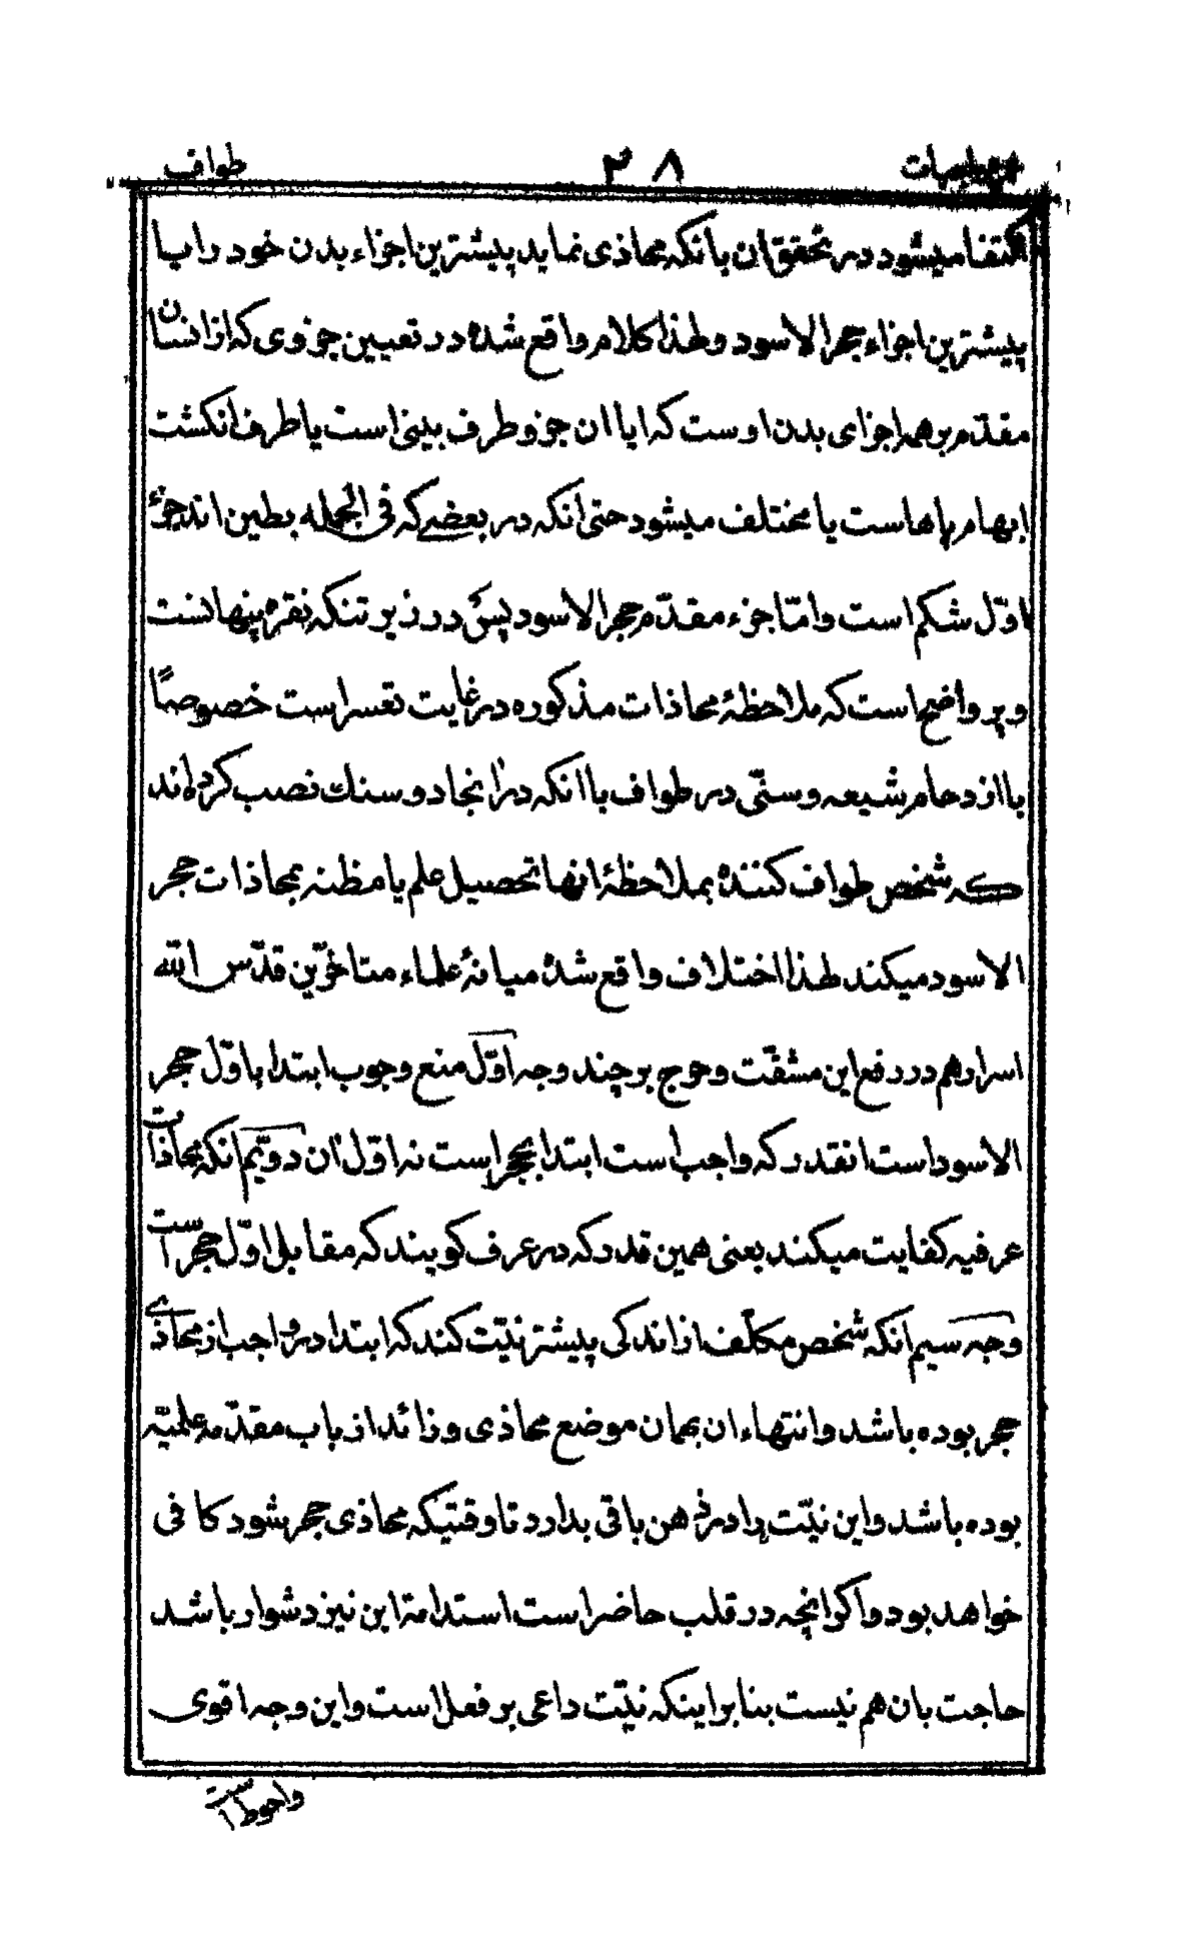 طواف ۳۸ واجبات
اکتفا میشود در تحقق ان بانکه محاذی نماید پیشترین اجزاء بدن خود را با
پیشترین اجزاء حجر الاسود و لهذا کلام واقع شده در تعیین جزوی که از انسان
مقدّم بر همه اجزای بدن اوست که ایا ان جزو طرف بینی است یا طرف انکشت
ابهام پاهاست یا مختلف میشود حتی انکه در بعضے که فی الجمله بطین اند جزء
اوّل شکم است و امّا جزء مقدّم حجر الاسود پس در زیر تنکه نقره پنهانست
و پر واضح است که ملاحظهٔ محاذات مذکوره در غایت تعسر است خصوصًا
با ازدحام شیعه و سنّی در طواف با انکه در انجا دو سنك نصب کرده اند
که شخص طواف کننده بملاحظهٔ انها تحصیل علم یا مظنه بمحاذات حجر
الاسود میکند لهذا اختلاف واقع شده میانهٔ علماء متاخّرین قدّس الله
اسرارهم در رفع این مشقّت و حرج بر چند وجه اوّل منع وجوب ابتدا باوّل حجر
الاسود است انقدر که واجب است ابتدا بحجر است نه اوّل ان دویّم انکه محاذات
عرفیه کفایت میکند یعنی همین قدر که در عرف کویند که مقابل اوّل حجر است
وجه سیم انکه شخص مکلّف از اندکی پیشتر نیّت کند که ابتداء در واجب از محاذی
حجر بوده باشد و انتهاء ان بهمان موضع محاذی و زائد از باب مقدّمه علمیّه
بوده باشد و این نیّت را در ذهن باقی بدارد تا وقتیکه محاذی حجر شود کافی
خواهد بود و اکر انچه در قلب حاضر است استدامهٔ این نیز دشوار باشد
حاجت بان هم نیست بنا بر اینکه نیّت داعی بر فعل است و این وجه اقوی
و احوط است